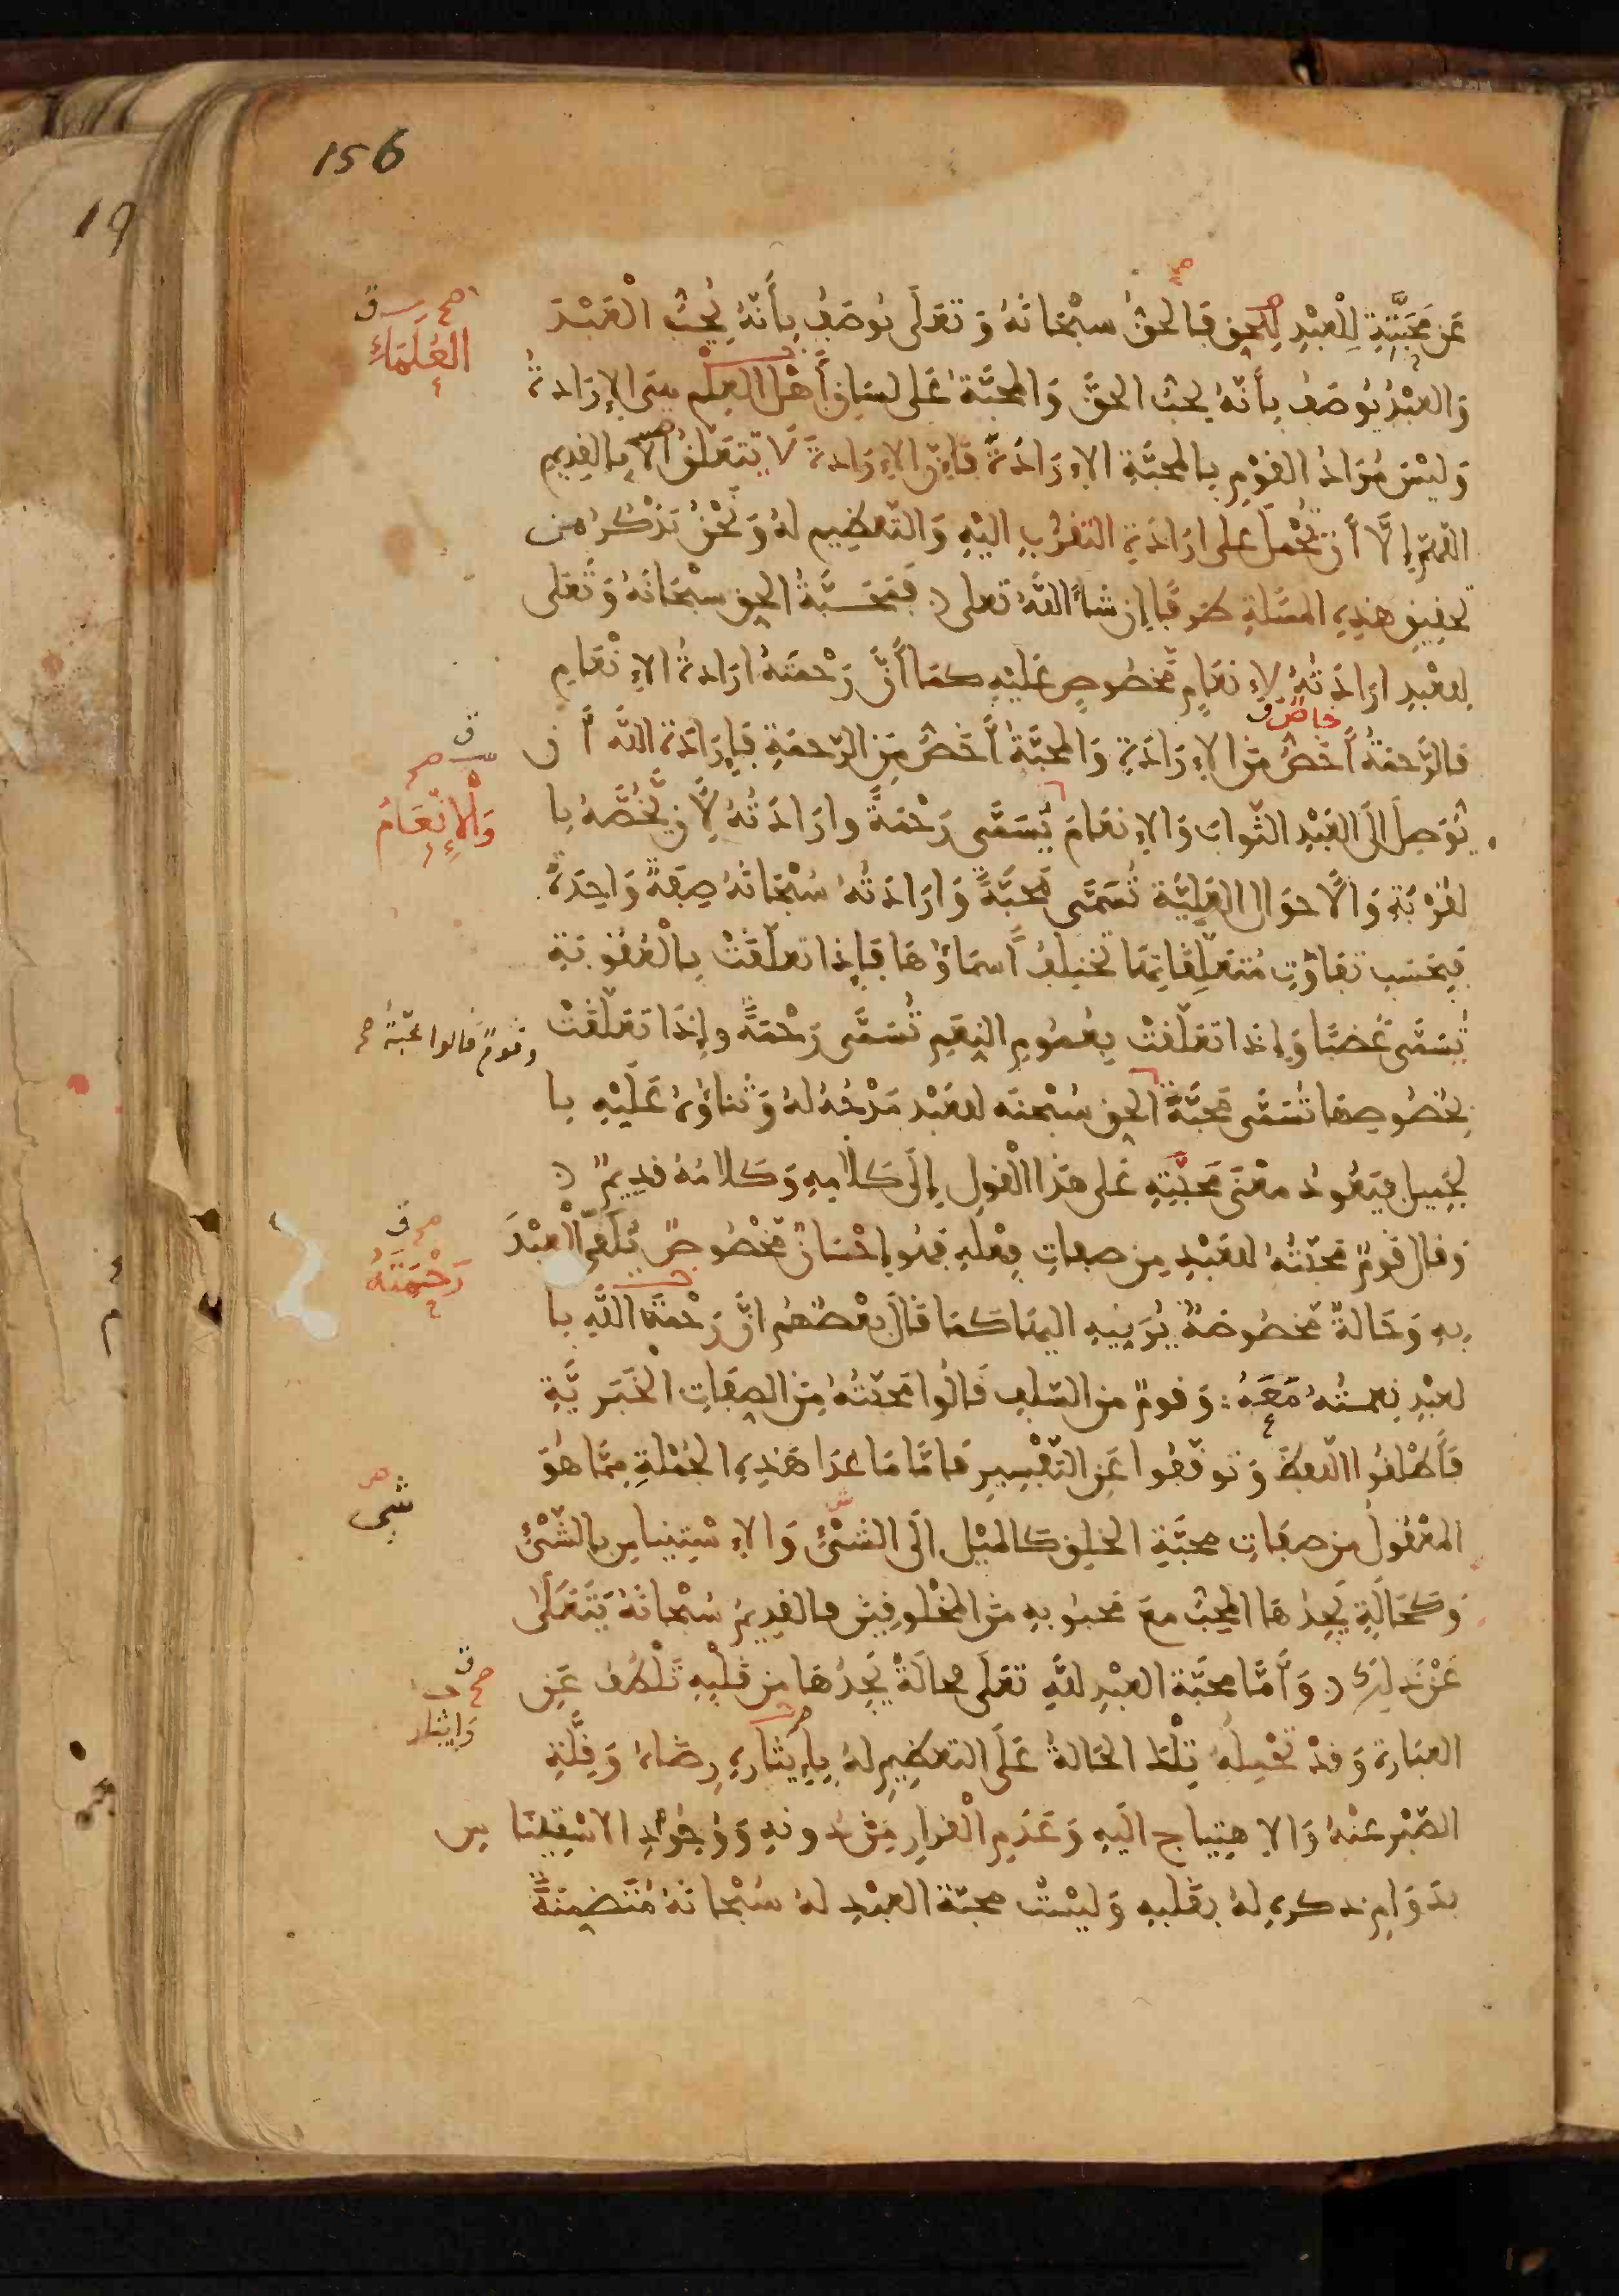 156
19
عَن مَحَبَّتِهِ لِلْعَبْدِ لِلحق فالحقُّ سبْحَانَهُ وَتعَلَى يُوصَفُ بِأَنّهُ يُحِبُّ الْعَبْدَ
العُلَمَاءِ
وَالعَبْدُ يُوصَفُ بِأنّهُ يحبُّ الحقَّ وَالمحبَّةُ عَلى لسَانِ أَهْل العِلْم هيَ الإرَادةُ
وَليْسَ مُرَادُ القوْمِ بالمحبَّةِ الإِرَادَةَ فَإنّ الإرَادةَ لَا تتعَلّقُ إلّا بالقديمِ
اللهمّ إلَّا أنْ تُحْملَ على ارَادَةِ التقرُّبِ اليْهِ وَالتّعظِيم لهُ وَنحْنُ نذْكرُ من
تحقيقِ هذِهِ المسْئلةِ طرَفًا إن شاءَ اللهُ تعلى فَمحَبَّةُ الحقِ سبْحَانَهُ وَتعَلى
لِلعَبْدِ ارَادَتُهُ لِإنعَامٍ مَخصُوصٍ عَليْهِ كمَا أَنَّ رَحْمَتَهُ ارَادةُ الإِنْعَامِ
خاصّ ق
فَالرَّحمَةُ أَخَصُّ مِنَ الإِرَادَةِ وَالمحبَّةُ أَخَصُّ مِنَ الرّحمَةِ فَإرَادَة اللهِ أَن
وَالْإِنْعَامُ
يُوَصِلَ الَى العَبْدِ الثّوابَ وَالإنعَامَ يُسَمَّى رَحْمَةً وارَادَتُهُ لِأَن يَخُصَّهُ با
لقُرْبَةِ وَالأَحوَال العَلِيَّة تُسَمَّى مَحَبَّةً وَارَادَتُهُ سُبْحَانَهُ صِفةٌ وَاحِدَةٌ
فَبِحَسَبِ تفَاوُتِ مُتعَلّقَاتِهَا تَختلِفُ أَسمَاؤُهَا فَإِذا تعلّقَتْ بالْعُقُوبَةِ
تُسَمَّى غَضَبًا وَإِذا تعَلّقَتْ بِعُمُومِ النِعَمِ تُسَمَّى رَحْمَةً وإِذَا تعَلّقَتْ
وقومٌ قالوا محبّةُ صح
بِخُصُوصِهَا تُسَمَّى مَحبَّةً الحقِ سُبْحنَه لِلعَبْد مَدْحُهُ لهُ وَثناؤُهُ عَلَيْهِ با
لجَمِيل فيَعُودُ معْنَى مَحَبَّتِهِ عَلى هَذَا القَوْلِ إِلَى كَلَامِهِ وَكَلامُهُ قدِيمٌ
وَقال قَومٌ مَحَبَّتُهُ لِلعَبْدِ مِن صِفاتِ فِعْلهِ فهُو إحْسَانٌ مَخْصُوصٌ يَلقى الْعَبْدَ
رَحْمَتَهُ
بِهِ وَحَالةٌ مَخصُوصَةٌ يُرَقِيهِ اليهَا كمَا قَالَ بعْضُهُم انَّ رَحْمَةَ اللهِ با
لعَبْدِ نِعمتُهُ مَعَهُ وَقومٌ من السَلفِ قَالوا مَحبّتُهُ مِنَ الصِفَاتِ الْخَبَريَّةِ
فَأَطْلقُوا اللّفظَ وَتوقّفُوا عَنِ التَّفْسِيرِ فأمَّا مَا عَدَا هَذِهِ الجُمْلةِ ممَّا هُوَ
شي
المعْقُولُ من صفَاتِ محبَّةِ الخلقِ كَالميْل الَى الشّيْءِ وَالإِسْتِينَاسِ بالشّيْءِ
وَكَحَالَةٍ يَجِدُهَا المحِبُّ معَ مَحبُوبهِ مِنَ المخلوقِينَ فالقدِيمُ سُبْحانَهُ يَتَعَالَى
عَنْ ذَلِكَ وَأَمَّا محَبَّة العبْدِ للهِ تعَلى فحالَةٌ يَجِدُهَا من قَلْبِهِ تَلْطُفُ عَنِ
وَإِيثار
العبَارة وَقدْ تحْمِلُهُ تِلْكَ الحَالةُ عَلَى التعظِيمِ لهُ بِإِيثارِهِ رِضَاهُ وَقِلَّةِ
الصّبْرِ عنْهُ وَالإهتِيَاج اليهِ وَعَدَمِ القرارِ مِنْ دُونهِ وَوُجُودِ الاسْتِيناس
بدَوَامِ ذكرهِ لهُ بقلبهِ وَليْسَتْ محبّة العبْدِ لهُ سُبْحانَهُ مُتَضَمِنَةً